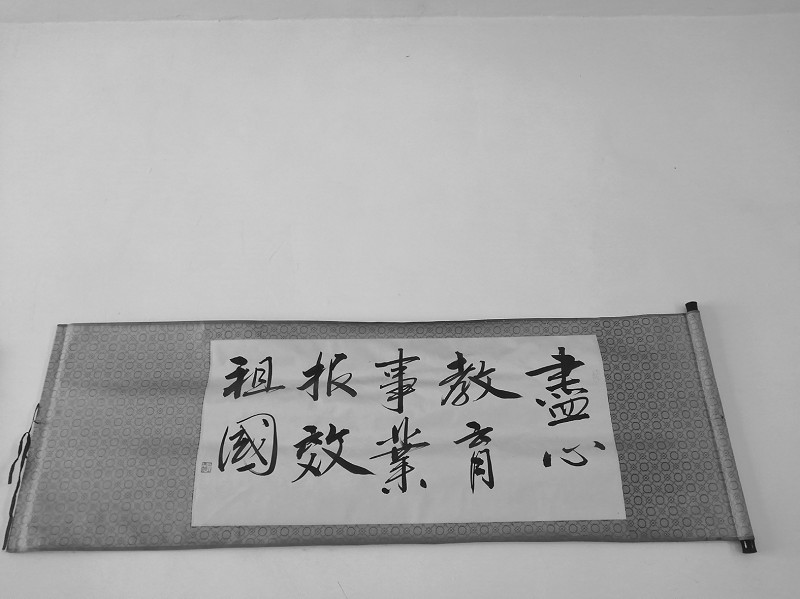 盡心
教育
事業
报效
祖國